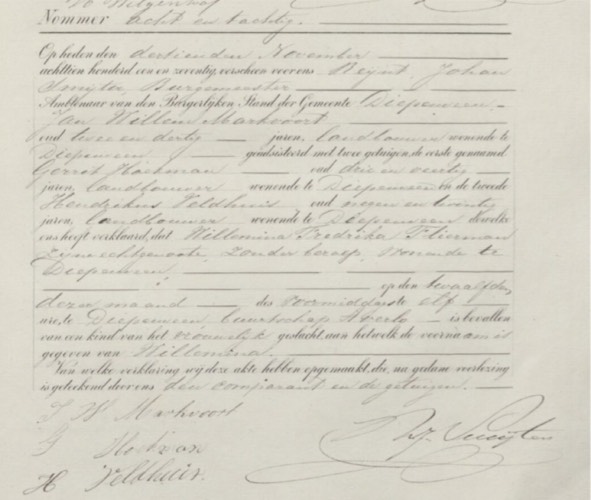 Nommer acht en tachtig.
Op heden den dertienden November
achttien honderd een en zeventig, verscheen voor ons Reynt Johan
Burgemeester
Ambtenaar van den Burgerlijken Stand der Gemeente Diepenveen,
Jan Willem Markvoort
oud twee en dertig jaren, landbouwer wonende te
Diepenveen geadsisteerd met twee getuigen, de eerste genaamd
Gerrit oud drie en veertig
jaren, landbouwer wonende te Diepenveen en de tweede
Hendrikus Veldhuis oud negen en twintig
jaren, landbouwer wonende te Diepenveen dewelke
ons heeft verklaard, dat Willemina Fredrika Flierman
zijne echtgenoote, zonder beroep, wonende te
Diepenveen,
op den twaalfden
dezer maand des voormiddags te elf
ure, te Diepenveen buurtschap Averlo is bevallen
van een kind van het vrouwelijk geslacht, aan hetwelk de voornaam is
gegeven van Willemina.
Van welke verklaring wij deze akte hebben opgemaakt, die, na gedane voorlezing
is geteekend door ons den comparant en de getuigen.
J W Markvoort
G
H Veldhuis.